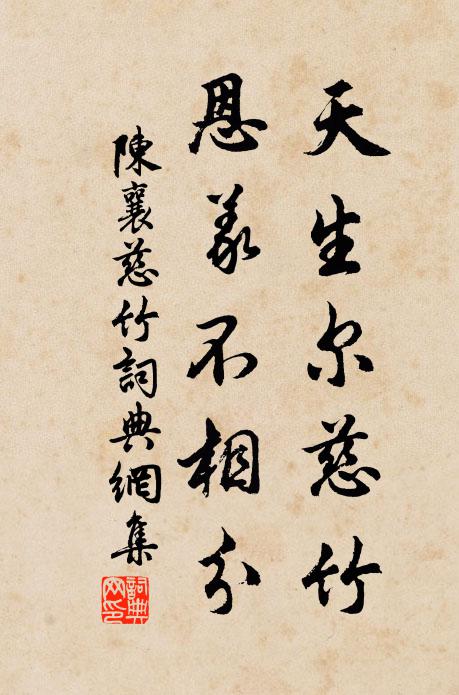 天生尔慈竹
恩义不相分
陳襄慈竹詞典網集
詞典
网印